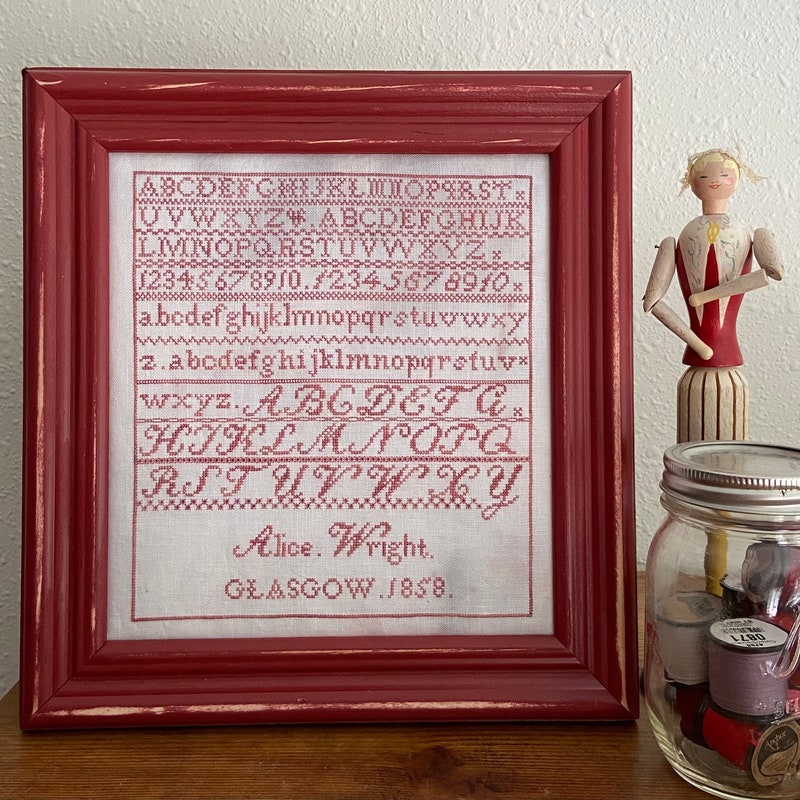 ABCDEFGHIJKLMNOPQRST.
UVWXYZ ABCDEFGHIJK
LMNOPQRSTUVWXYZ.x
12345678910.12345678910x
abcdefghijklmnopqrstuvwxy
z.abcdefghijklmnopqrstuvx
wxyz.ABCDEFGx
HIJKLMNOPQ
RSTUVWXY
Alice.Wright.
GLASGOW.1858.
0871
Anchor